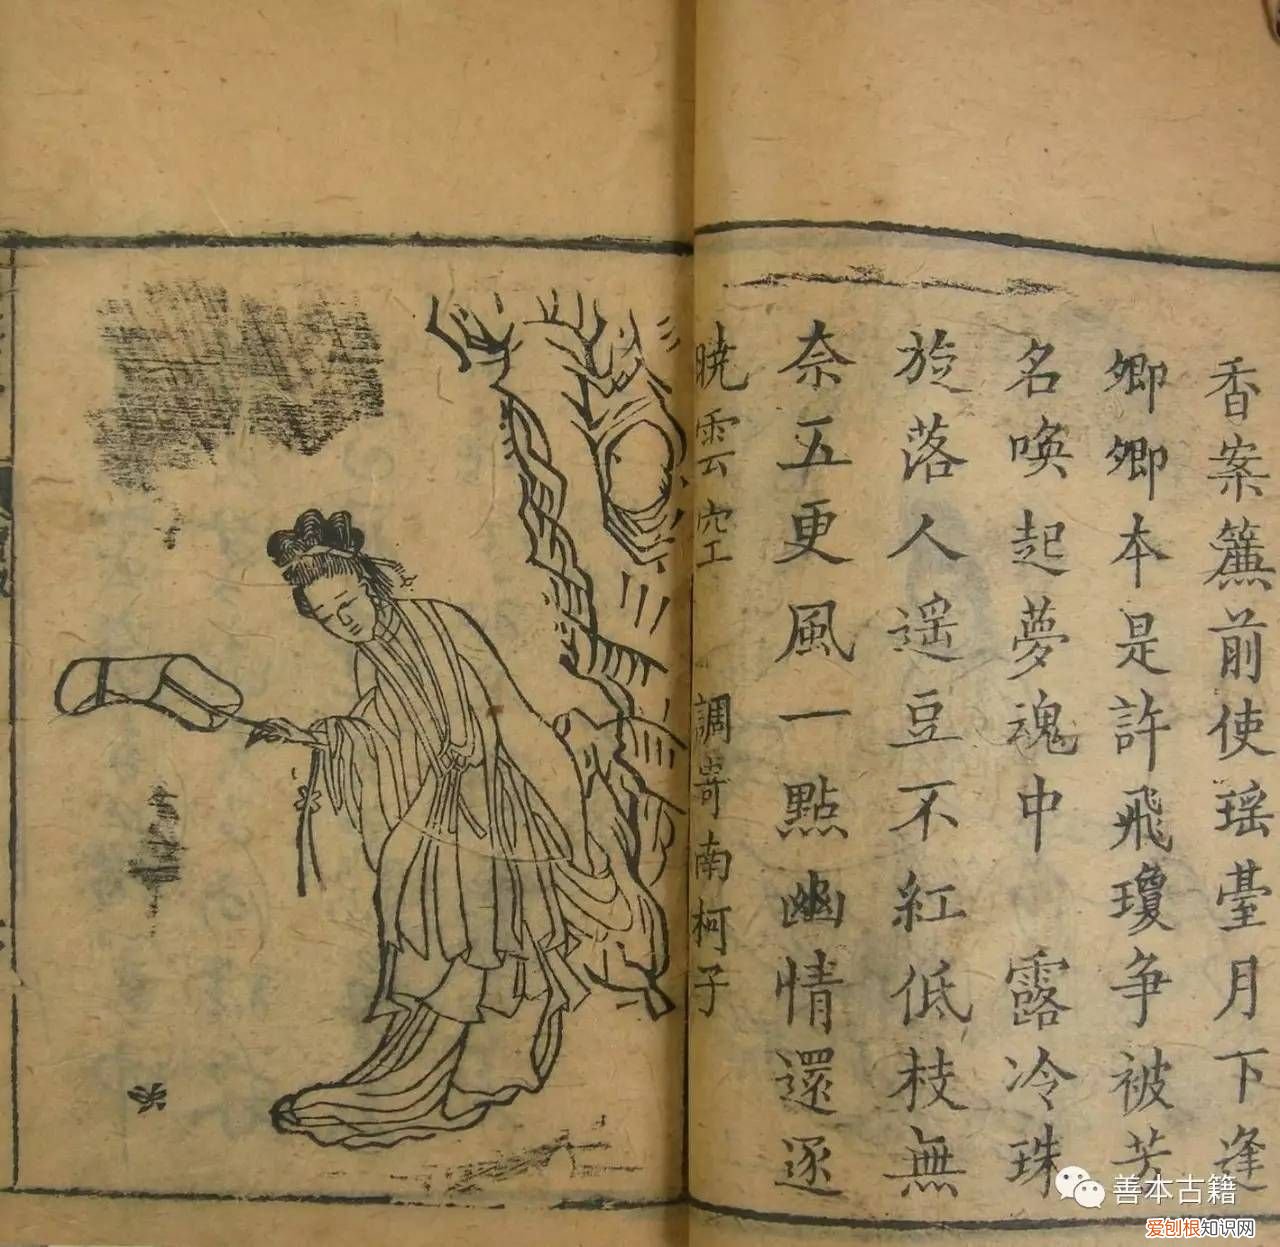 香案簾前使瑶臺月下逢
卿卿本是許飛瓊争被芳
名喚起夢魂中　露冷珠
旋落人遥豆不紅低枝無
奈五更風一點幽情還逐
曉雲空　調寄南柯子
善本古籍
爱刨根知识网